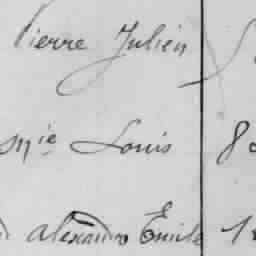 Pierre Julien
mie Louis 8
Alexandre Emile 1